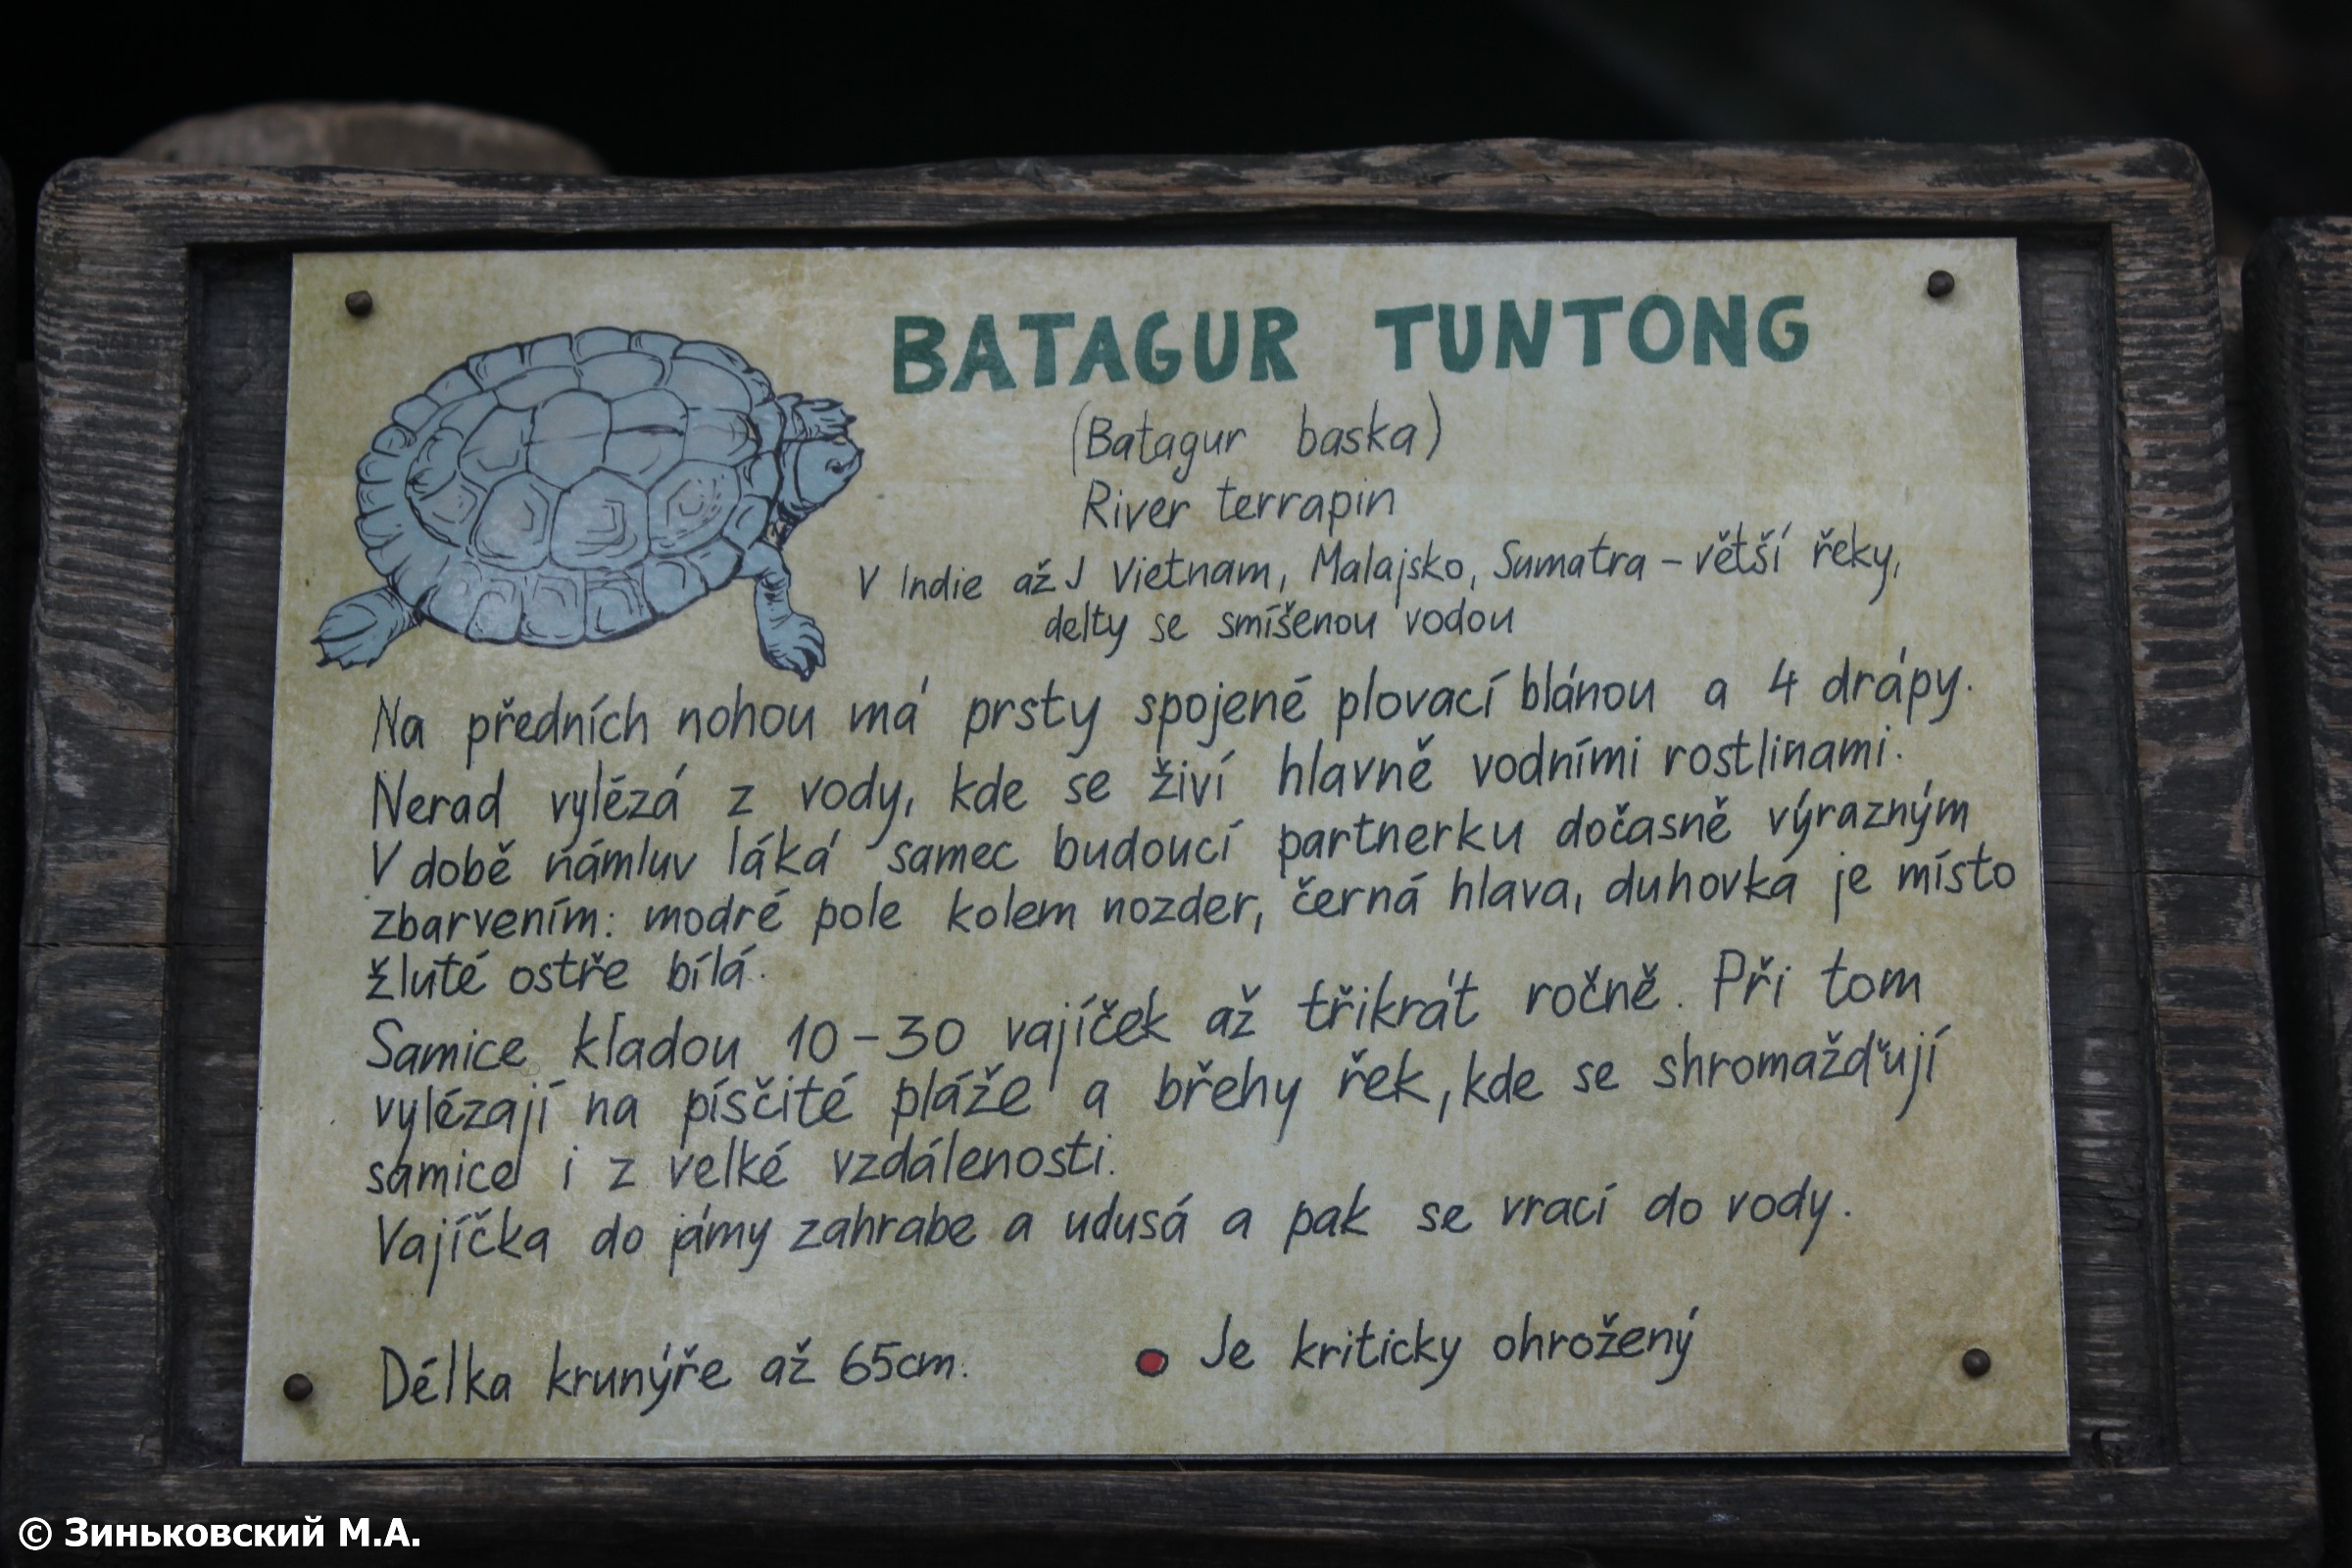 BATAGUR TUNTONG
(Batagur baska)
River terrapin
V Indie až J Vietnam, Malajsko, Sumatra - větší řeky,
delty se smíšenou vodou
Na předních nohou má prsty spojené plovací blánou a 4 drápy.
Nerad vylézá z vody, kde se živí hlavně vodními rostlinami.
V době námluv láká samec budoucí partnerku dočasně výrazným
zbarvením: modré pole kolem nozder, černá hlava, duhovka je místo
žluté ostře bílá.
Samice kladou 10-30 vajíček až třikrát ročně. Při tom
vylézají na písčité pláže a břehy řek, kde se shromažďují
samice i z velké vzdálenosti.
Vajíčka do jámy zahrabe a udusá a pak se vrací do vody.
Délka krunýře až 65cm.
Je kriticky ohrožený
© Зиньковский М.А.